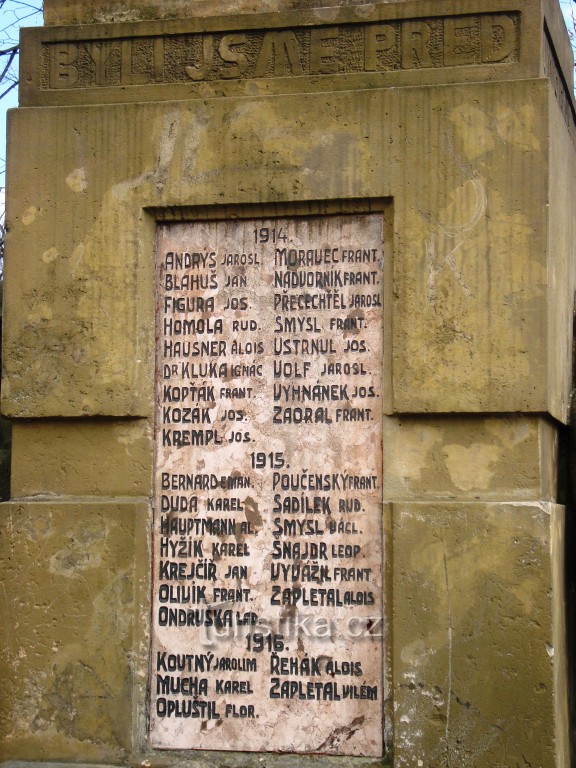 BYLI JSME PŘED
1914.
ANDRÝS JAROSL. MORAVEC FRANT.
BLAHUŠ JAN NÁDVORNÍK FRANT.
FIGURA JOS. PŘECECHTĚL JAROSL.
HOMOLA RUD. SMYSL FRANT.
HAUSNER ALOIS USTRNUL JOS.
DR KLUKA IGNÁC VOLF JAROSL.
KOPŤÁK FRANT. VYHNÁNEK JOS.
KOZÁK JOS. ZAORAL FRANT.
KREMPL JOS.
1915.
BERNARD EMAN. POUČENSKÝ FRANT.
DUDA KAREL SADÍLEK RUD.
HAUPTMANN AL. SMYSL VÁCL.
HYŽÍK KAREL ŠNAJDR LEOP.
KREJČÍŘ JAN VYVÁŽIL FRANT.
OLIVÍK FRANT. ZAPLETAL ALOIS
ONDRUŠKA LAD.
1916.
KOUTNÝ JAROLIM ŘEHÁK ALOIS
MUCHA KAREL ZAPLETAL VILÉM
OPLUŠTIL FLOR.
turistika.cz